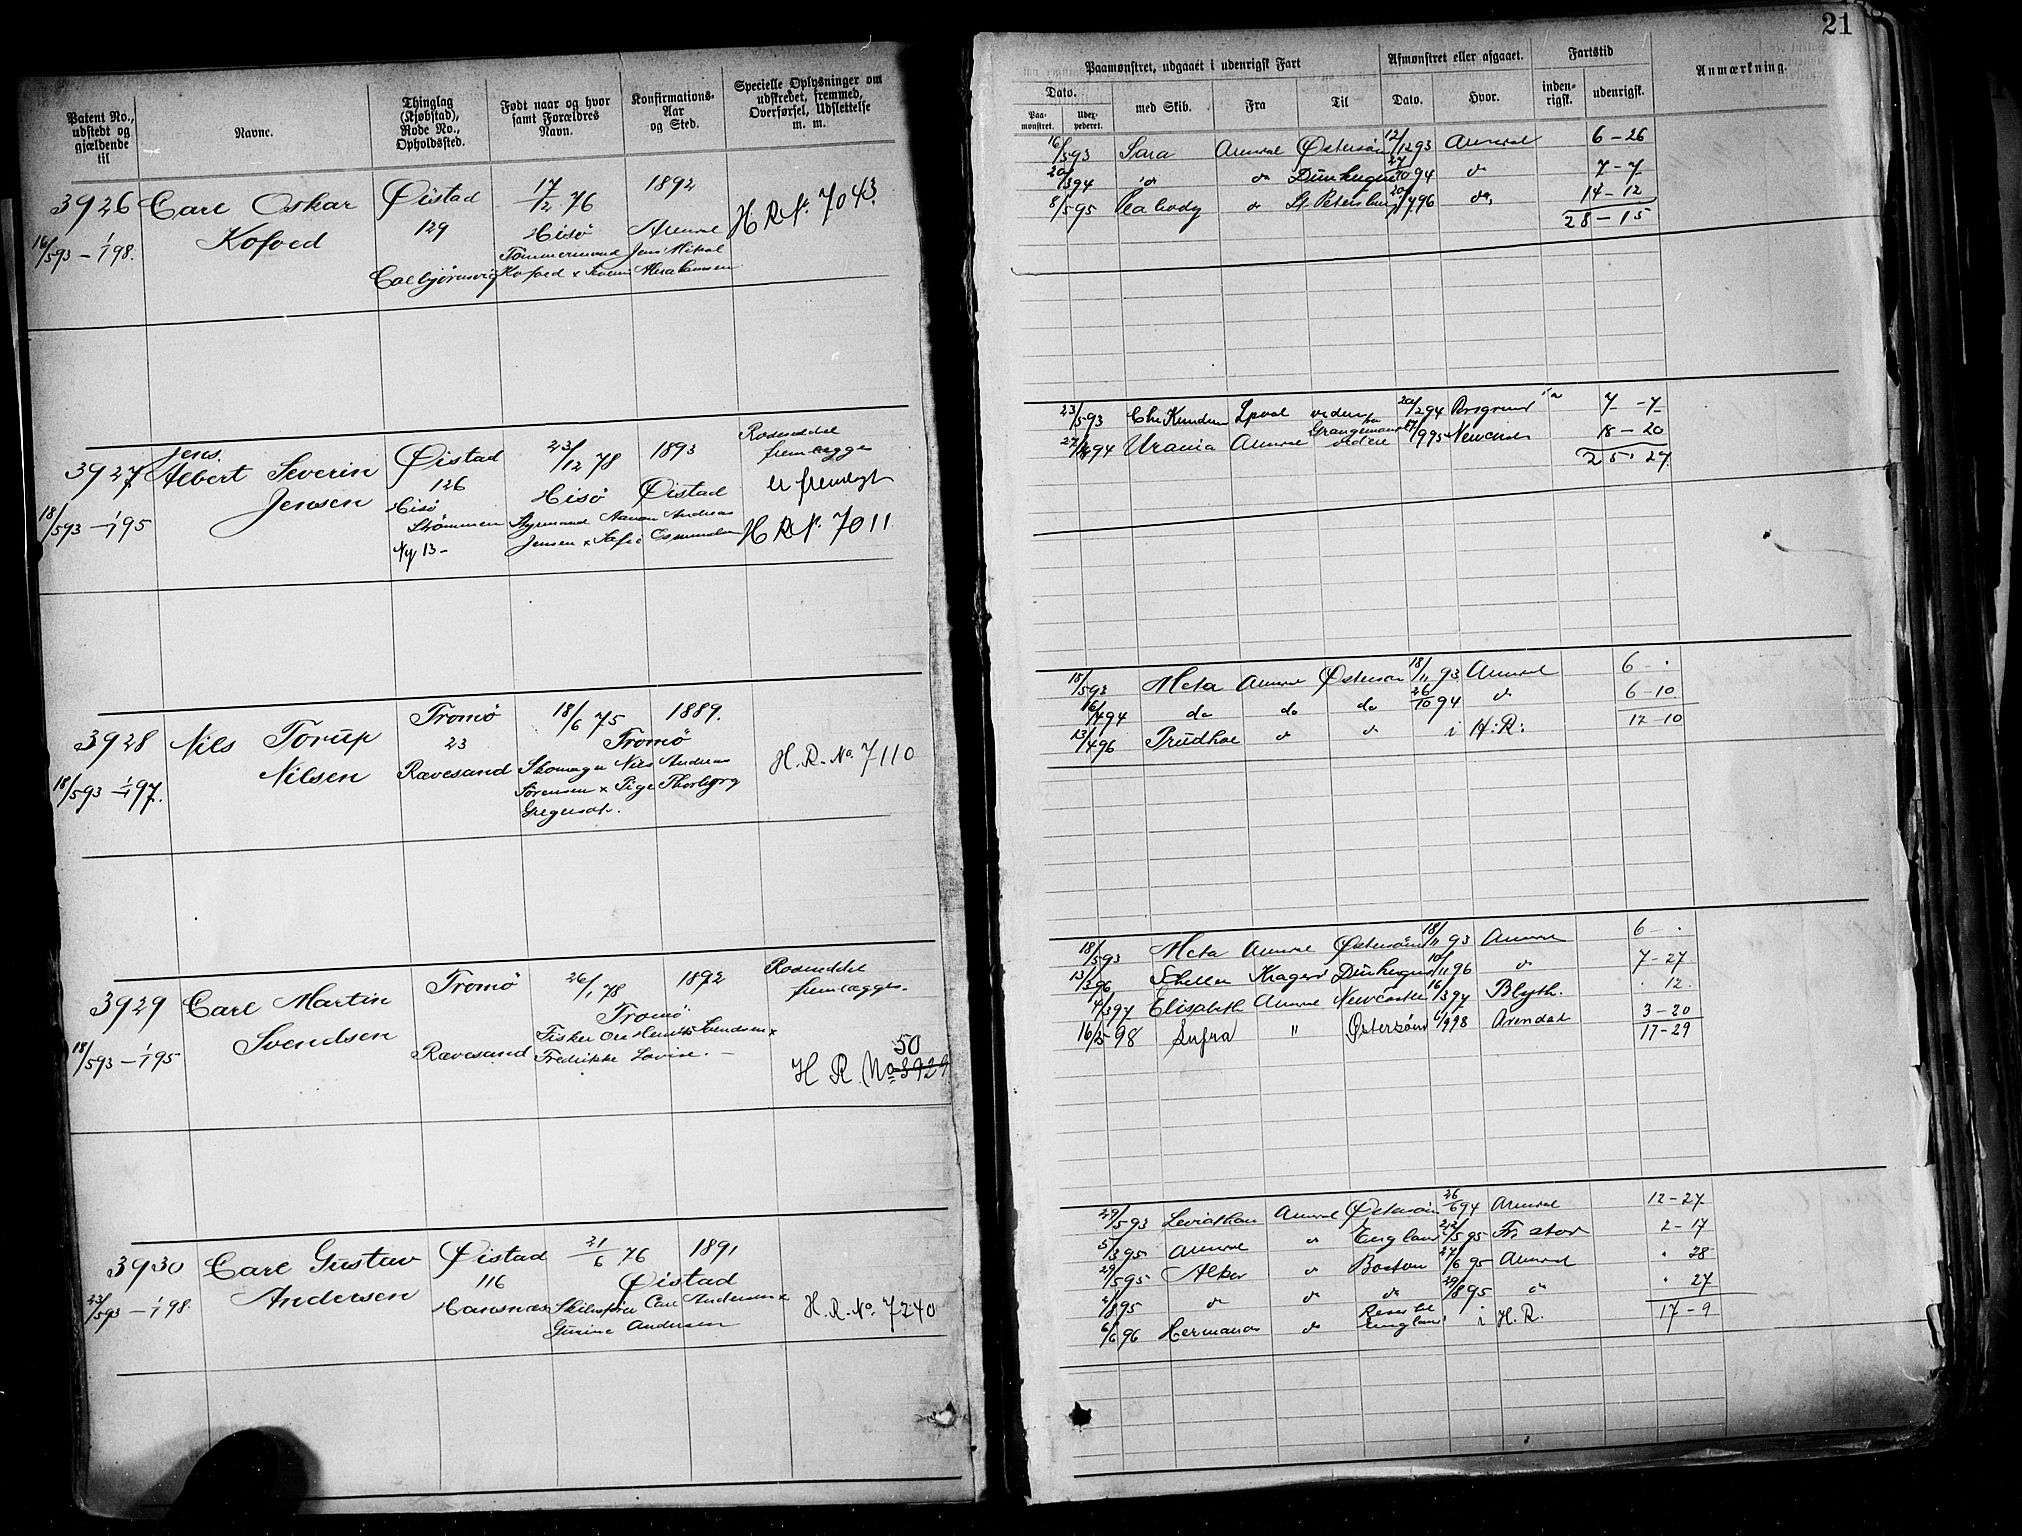 21
Patent No., udstedt og gjældende til
Navne.
Thinglag (Kjøbstad), Rode No., Opholdssted.
Født naar og hvor samt Forældres Navn.
Konfirmations-Aar og Sted.
Specielle Oplysninger om udskrevet, fremmed, Overførsel, Udslettelse m. m.
Paamønstret, udgaaet i udenrigsk Fart
Afmønstret eller afgaaet.
Fartstid
Anmærkning.
Dato.
Paa-mønstret.
Udex-pederet.
med Skib.
Fra
Til
Dato.
Hvor.
inden-rigsk.
udenrigsk.
3926 Carl Oskar Øistad 17/12 76 1892 H R No. 7043
Kofoed 129 Hisø Arendal
16/5 93 – 1/1 98. Tømmermand Jens Mikal
Colbjørnsvig Kofoed x
16/5 93 Sara Arendal Østersøen 12/12 93 Arendal 6 – 26
20/3 94 do do Dünkerque 27/10 94 do 7 – 7
8/5 95 Peabody do St Petersburg 20/7 96 do, 14 – 12
28 – 15
Jens.
3927 Albert Severin Øistad 23/12 78 1893 Rodeseddel fremlægges
Jensen 126 Hisø Øistad er fremlagt
18/5 93 – 1/1 95 Hisø Strømmen Styrmand Aanon Andreas
Ny 13 – Jensen x Sofie Osmundsen H R No. 7011
23/5 93 Chr Knudsen Lpool videre 20/2 94 Porsgrund 7 – 7
27/4 94 Urania Arendal Grangemouth videre 17/9 95 Newcastle 18 – 20
25 · 27
3928 Nils Torup Tromø 18/6 75 1889.
Nilsen 23 Tromø H. R. No. 7110
18/5 93 – 1/1 97. Rævesand Skomager Nils Andreas
Sørensen x Tige Thorbjørg
Gregersdt.
18/5 93 Meta Arendal Østersøen 18/11 93 Arendal 6 – ·
16/4 94 do do do 26/10 94 do 6 – 10
13/4 96 Prudhoe do do i H: R: 12 – 10
3929 Carl Martin Tromø 26/1 78 1892 Rodeseddel fremlægges.
Svendsen Tromø
18/5 93 – 1/1 95 Rævesand Fisker Svendsen x
Fredrikke Lovise. – 50
H R No 3929
18/5 93 Meta Arendal Østersøen 18/11 93 Arendal 6 – ·
13/3 96 Kragerø Dünkerque 10/11 96 do 7 – 27
4/3 97 Elisabeth Arendal Newcastle 16/3 97 Blyth. · 12.
16/5 98 Arendal Østersøen 6/9 98 Arendal 3 – 20
17 – 29
3930 Carl Gustav Øistad 21/6 76 1891
Andersen 116 Øistad
23/5 93 – 1/1 98. Hansnæs Carl Andersen x H. R. No. 7240
Gurine Andersen
29/5 93 Leviathan Arendal Østersøen 26/6 94 Arendal 12 – 27
5/3 95 Arendal do England 22/5 95 2 – 17
29/5 95 Alker do Boston 27/6 95 Arendal · 28
2/8 95 do do do 29/8 95 do · 27
6/6 96 Hermanos do England i H. R. 17 – 9